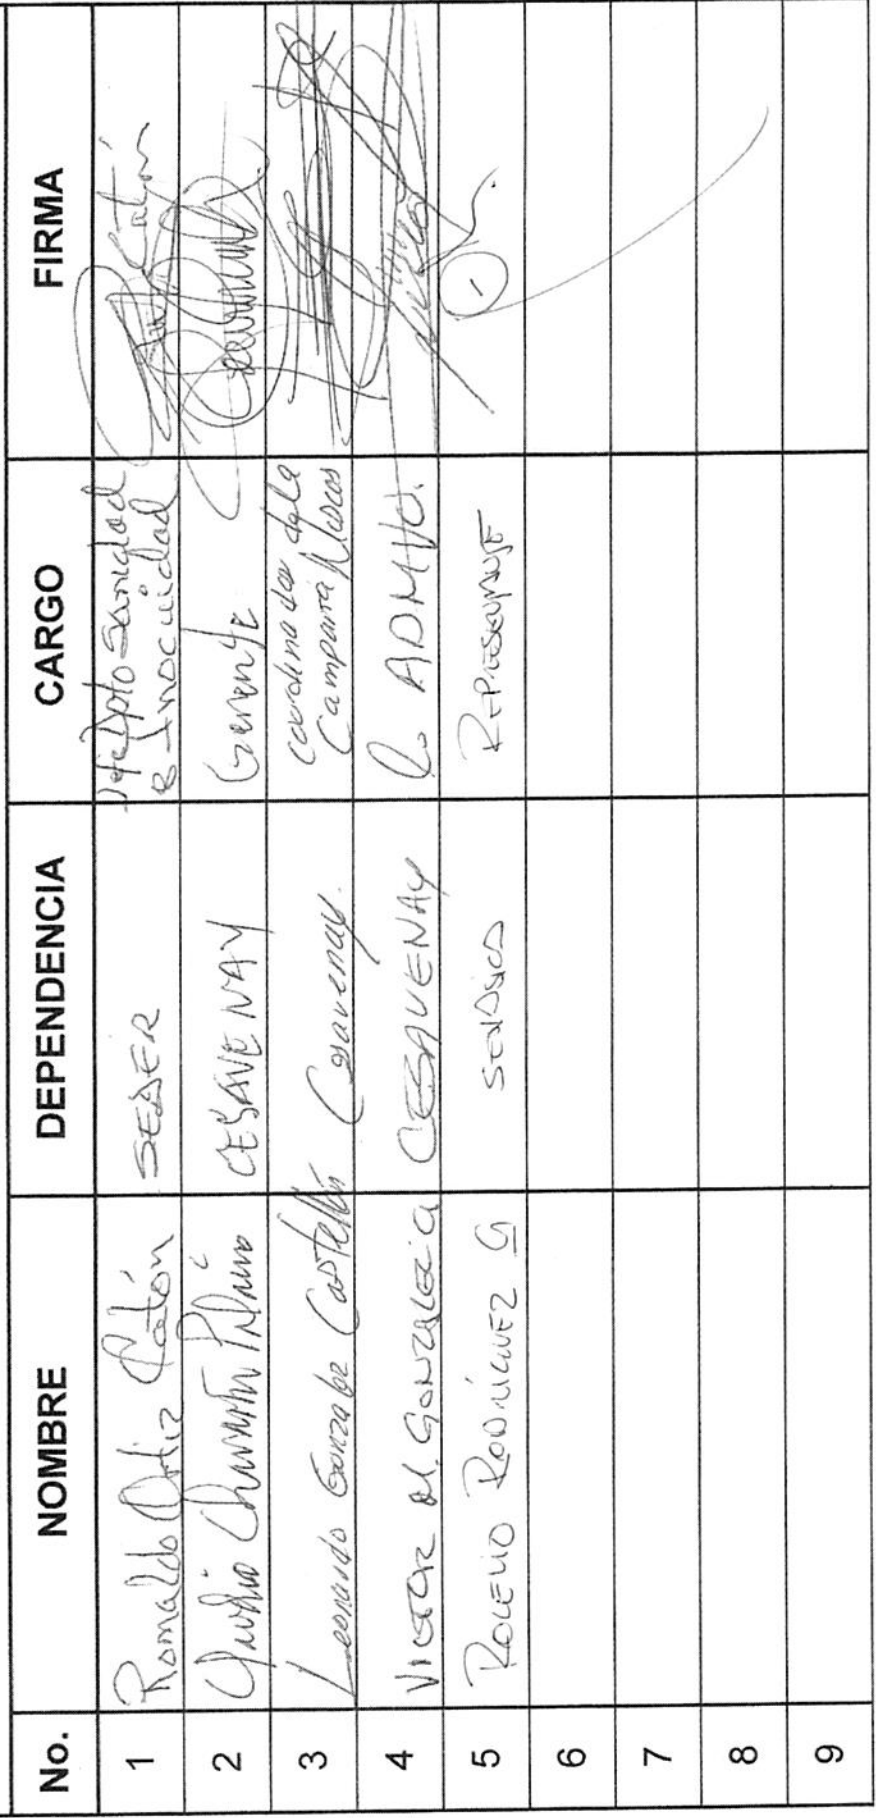 No. NOMBRE DEPENDENCIA CARGO FIRMA
1 Romaldo Ortiz Catón SEDER Jefe Dpto Sanidad
e Inocuidad
2 CESAVENAY Gerente
3 Leonardo Gonzalez Castellón Cesavenay. Coordinador de la
Campaña Moscas
4 VICTOR M. GONZALEZ G CESAVENAY C. ADMVO.
5 ROGELIO RODRÍGUEZ G REPRESENTANTE
6
7
8
9